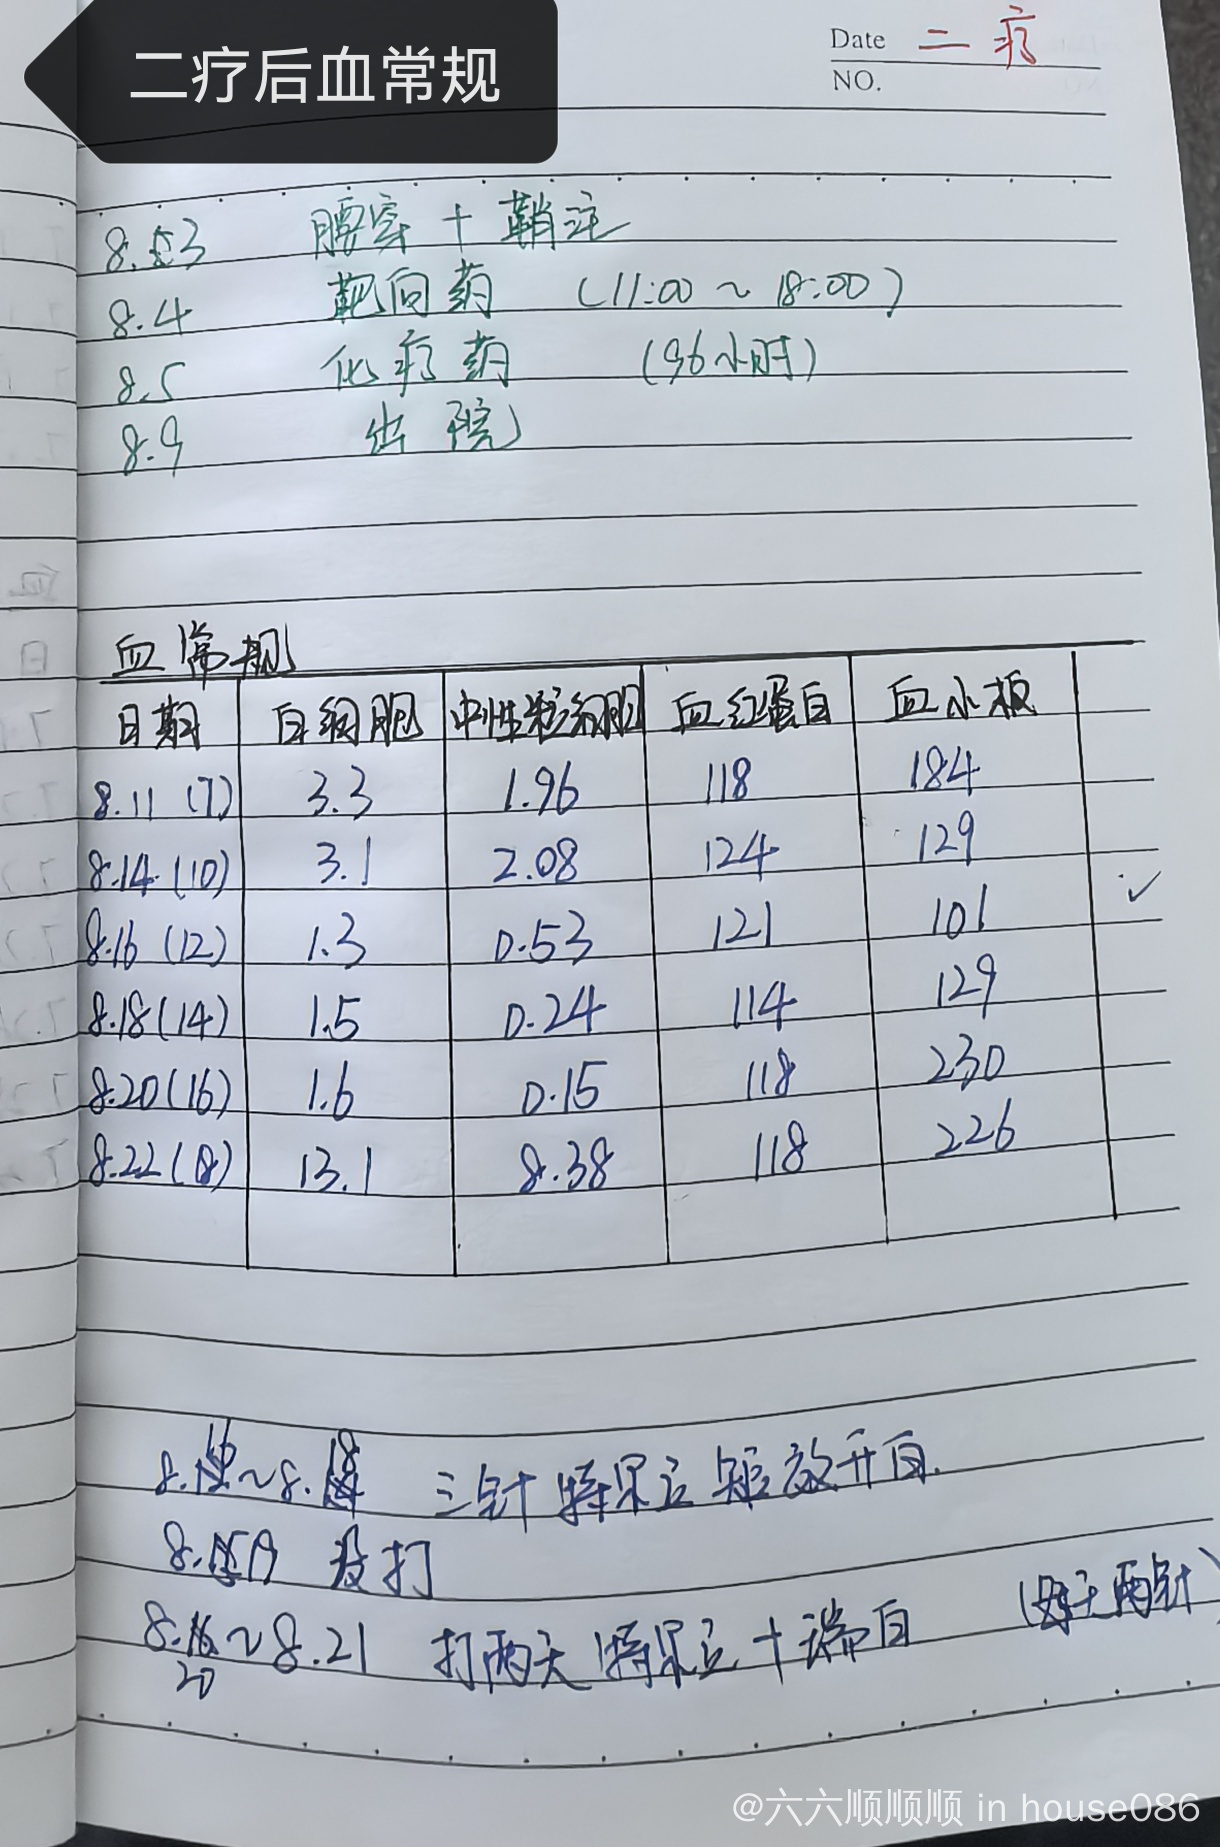 二疗后血常规
Date 二疗
NO.
8.3 腰穿 + 鞘注
8.4 靶向药 (11:00 ~ 18:00)
8.5 化疗药 (96小时)
8.9 出院
血常规
日期 白细胞 中性粒细胞 血红蛋白 血小板
8.11 (7) 3.3 1.96 118 184
8.14 (10) 3.1 2.08 124 129
8.16 (12) 1.3 0.53 121 101 ✓
8.18 (14) 1.5 0.24 114 129
8.20 (16) 1.6 0.15 118 230
8.22 (18) 13.1 8.38 118 226
8.16~8.18 三针特尔立短效升白.
8.19 没打
8.20~8.21 打两天特尔立+瑞白 (每天两针)
@六六顺顺顺 in house086